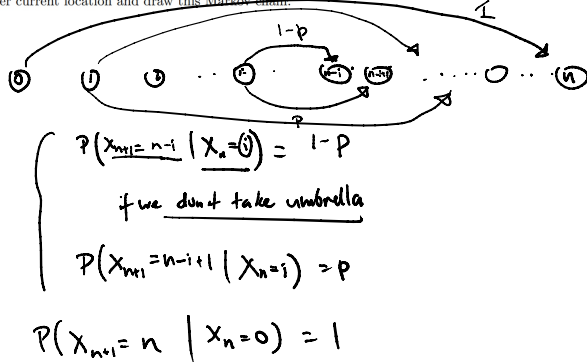 er current location and draw this Markov chain.
1
1-p
0 1 2 .. i . n-i n-i+1 ..... ... n
P
P(Xn+1=n-i | Xn=i) = 1-p
if we don't take umbrella
P(Xn+1=n-i+1 | Xn=i) = p
P(Xn+1=n | Xn=0) = 1